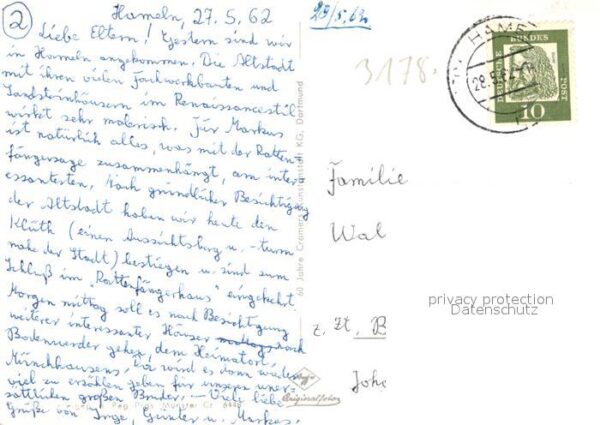 2
Hameln, 27.5.62
Liebe Eltern! Gestern sind wir
in Hameln angekommen. Die Altstadt
mit ihren vielen Fachwerkbauten und
Sandsteinhäusern im Renaissancestil
wirkt sehr malerisch. Für Markus
ist natürlich alles, was mit der Ratten-
fängersage zusammenhängt, am inter-
essantesten. Nach gründlicher Besichtigung
der Altstadt haben wir heute den
Klüth (einen Aussichtsberg u. -turm
nahe der Stadt) bestiegen u. sind zum
Schluß im "Rattenfängerhaus" eingekehrt.
Morgen mittag soll es nach Besichtigung
weiterer interessanter Häuser nach
Bodenwerder gehen, dem Heimatort
Münchhausens. Da wird es dann wieder
viel zu erzählen geben für unseren uner-
sättlichen großen Bruder. - Viele liebe
Grüße von Inge, Günter u. Markus.
23/5.62
3178.
HAME
28.5.62
DEUTSCHE
BUNDES
POST
10
60 Jahre Cramers Kunstanstalt KG, Dortmund
Familie
Wal
z. Zt. B
Joh
privacy protection
Datenschutz
Originalfoto
Reg. Präs. Münster Cr.